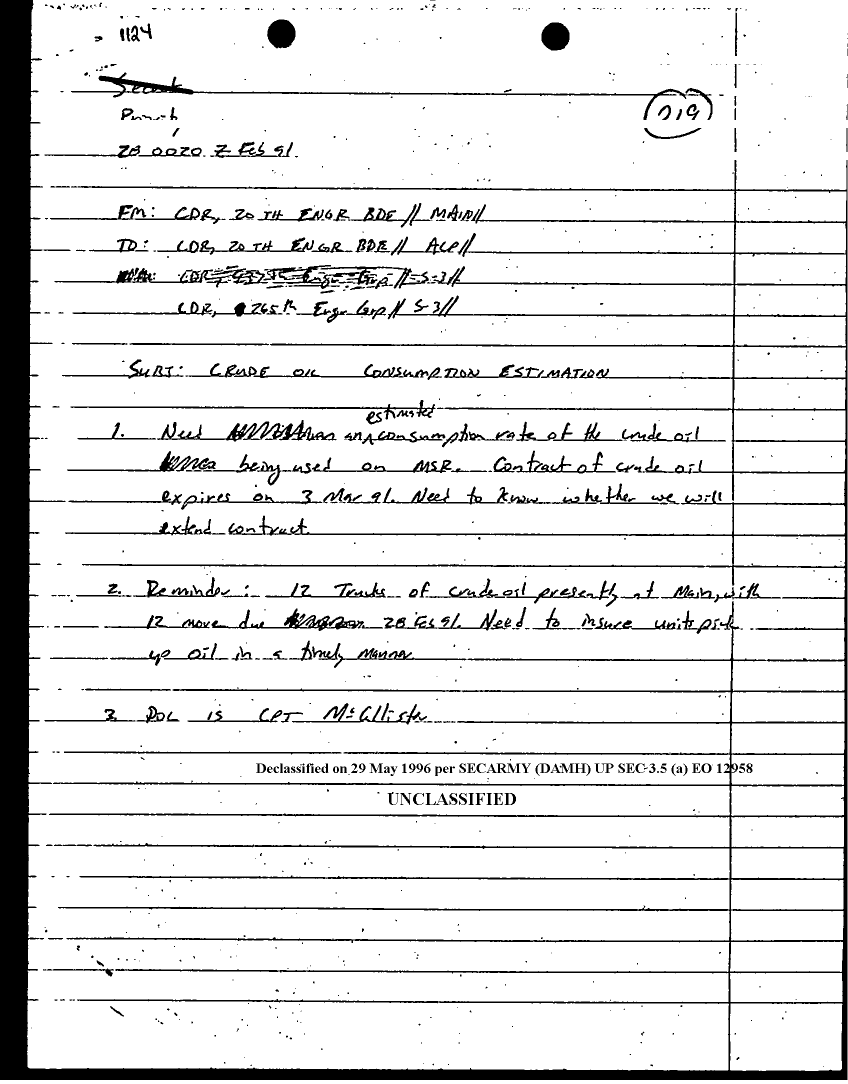 1124
Secret
219
28 0020 Z Feb 91
FM: CDR, 20 TH ENGR BDE // MAIN//
TO: CDR, 20 TH ENGR BDE // ALP//
CDR, Engr Grp // S-3//
CDR, 265th Engr Grp // S-3//
SUBJ: CRUDE OIL CONSUMPTION ESTIMATION
estimated
1. Need an consumption rate of the crude oil
being used on MSR. Contract of crude oil
expires on 3 Mar 91. Need to know whether we will
extend contract.
2. Reminder: 12 Trucks of crude oil presently at Main, with
12 more due 28 Feb 91. Need to insure units pick
up oil in a timely manner
3. POC is CPT McCllister
Declassified on 29 May 1996 per SECARMY (DAMH) UP SEC 3.5 (a) EO 12958
UNCLASSIFIED